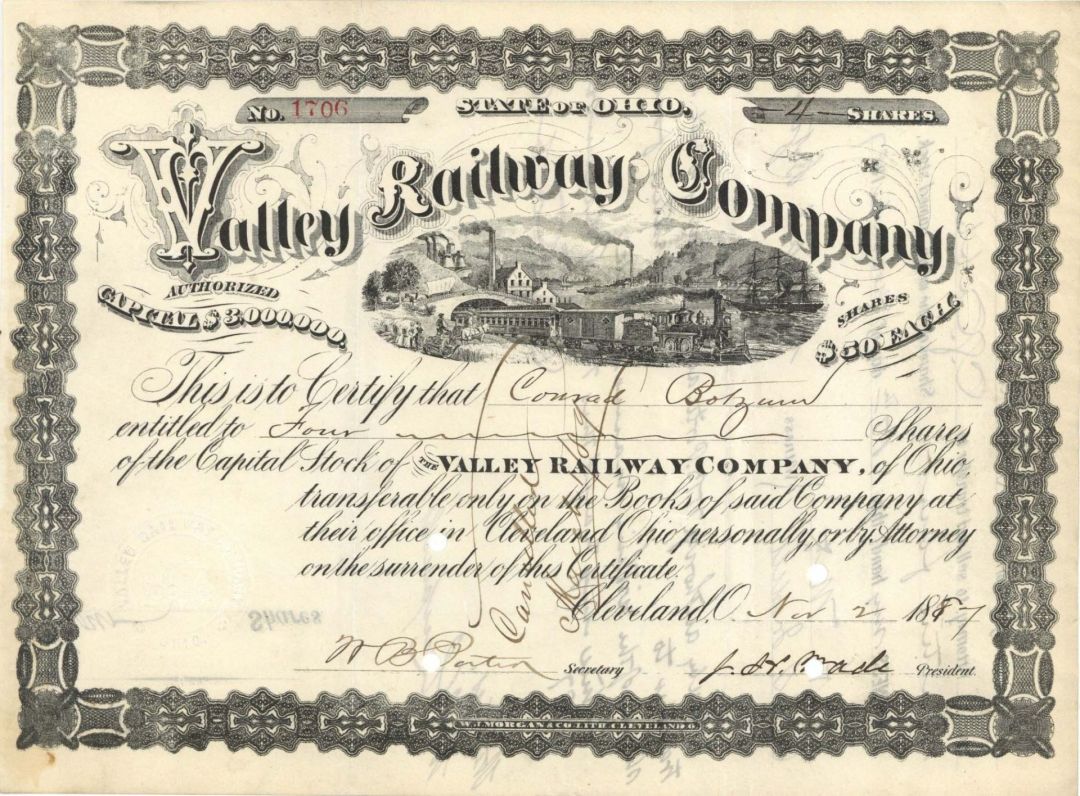 No. 1706
STATE OF OHIO,
4 SHARES.
Valley Railway Company
AUTHORIZED
CAPITAL $3,000,000.
SHARES
$50 EACH
This is to Certify that Conrad Botzum
entitled to Four Shares
of the Capital Stock of THE VALLEY RAILWAY COMPANY, of Ohio,
transferable only on the Books of said Company at
their office in Cleveland Ohio personally, or by Attorney
on the surrender of this Certificate.
Cleveland, O. Nov 2 1887
W B Porter Secretary J. H. Wade President.
Cancelled
Shares
W. J. MORGAN & CO. LITH. CLEVELAND, O.